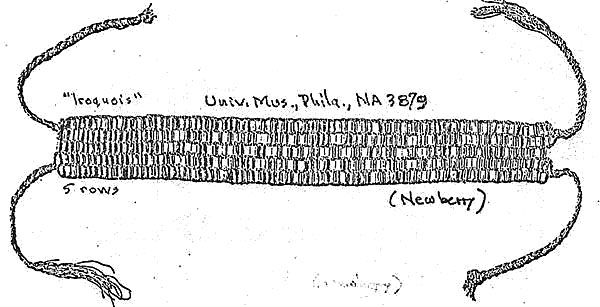 "Iroquois"
Univ. Mus., Phila., NA 3879
5 rows
(Newberry)